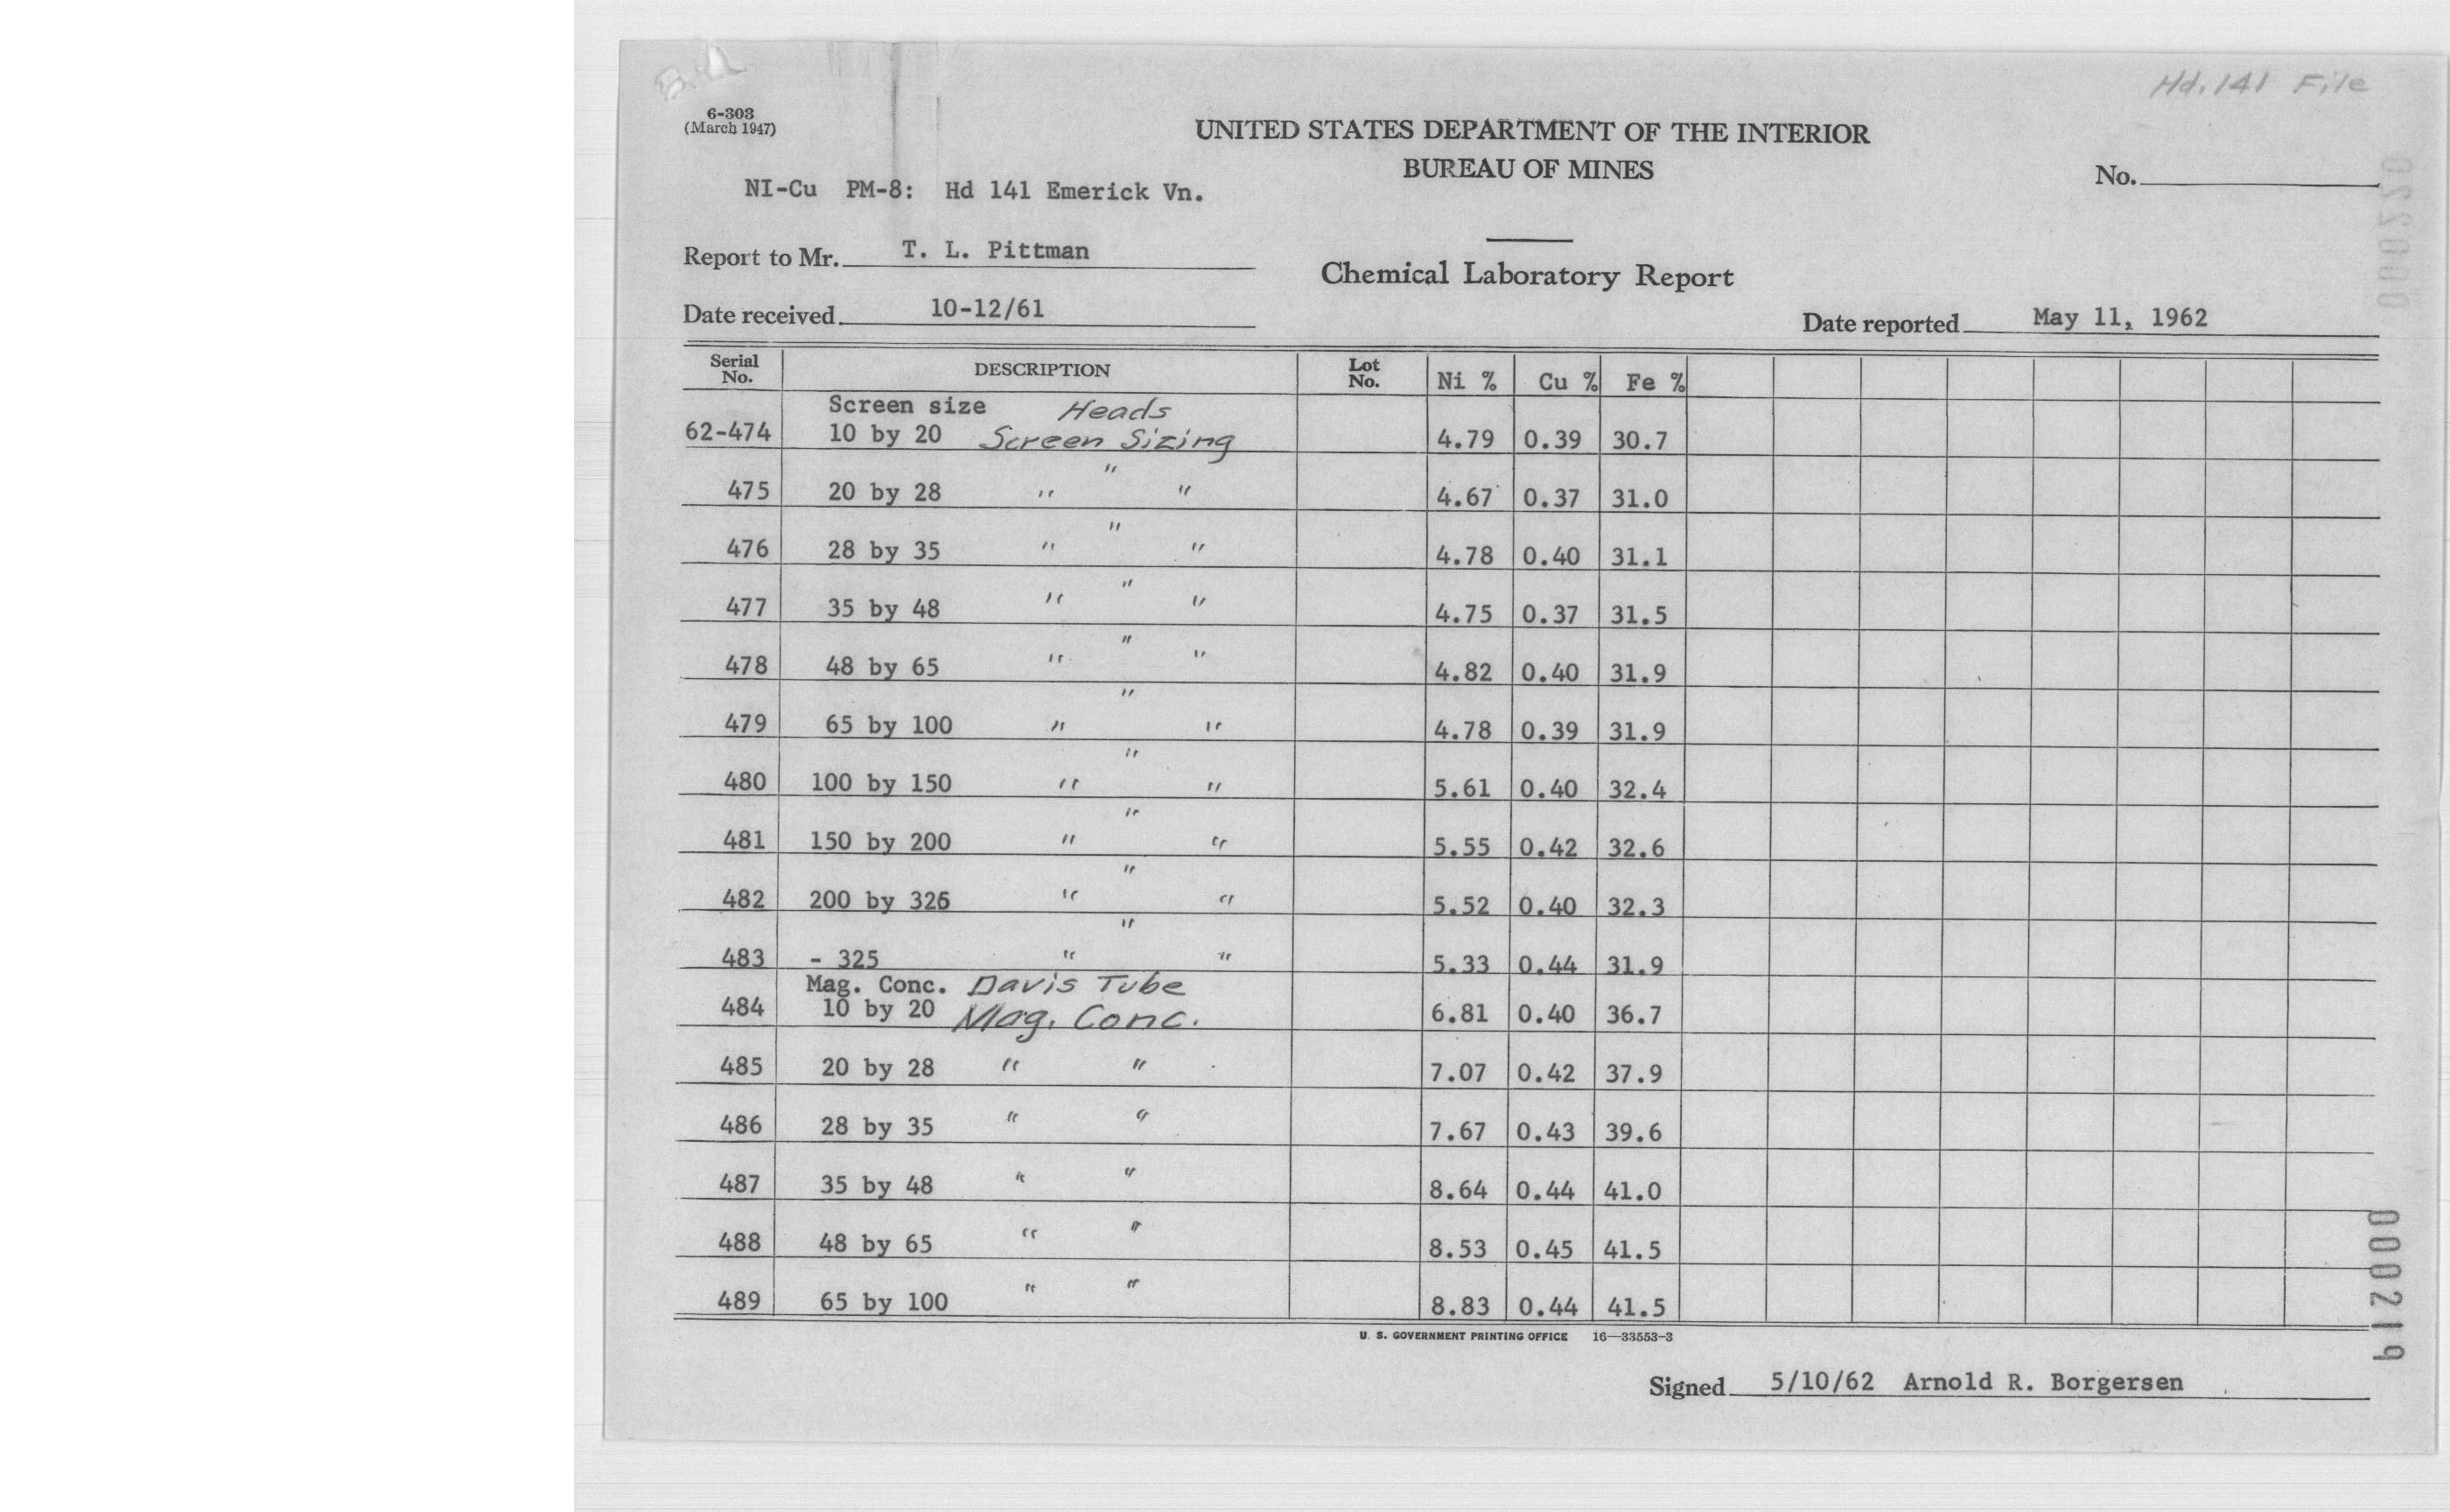 Bill
Hd. 141 File
6-303
(March 1947)
UNITED STATES DEPARTMENT OF THE INTERIOR
BUREAU OF MINES
No.
NI-Cu PM-8: Hd 141 Emerick Vn.
Report to Mr. T. L. Pittman
Chemical Laboratory Report
Date received 10-12/61
Date reported May 11, 1962
000220
Serial No. DESCRIPTION Lot No. Ni % Cu % Fe %
Screen size Heads
62-474 10 by 20 Screen Sizing 4.79 0.39 30.7
"
475 20 by 28 " " 4.67 0.37 31.0
"
476 28 by 35 " " 4.78 0.40 31.1
"
477 35 by 48 " " 4.75 0.37 31.5
"
478 48 by 65 " " 4.82 0.40 31.9
"
479 65 by 100 " " 4.78 0.39 31.9
"
480 100 by 150 " " 5.61 0.40 32.4
"
481 150 by 200 " " 5.55 0.42 32.6
"
482 200 by 325 " " 5.52 0.40 32.3
"
483 - 325 " " 5.33 0.44 31.9
Mag. Conc. Davis Tube
484 10 by 20 Mag. Conc. 6.81 0.40 36.7
485 20 by 28 " " 7.07 0.42 37.9
486 28 by 35 " " 7.67 0.43 39.6
487 35 by 48 " " 8.64 0.44 41.0
488 48 by 65 " " 8.53 0.45 41.5
489 65 by 100 " " 8.83 0.44 41.5
000219
U. S. GOVERNMENT PRINTING OFFICE 16—33553-3
Signed 5/10/62 Arnold R. Borgersen